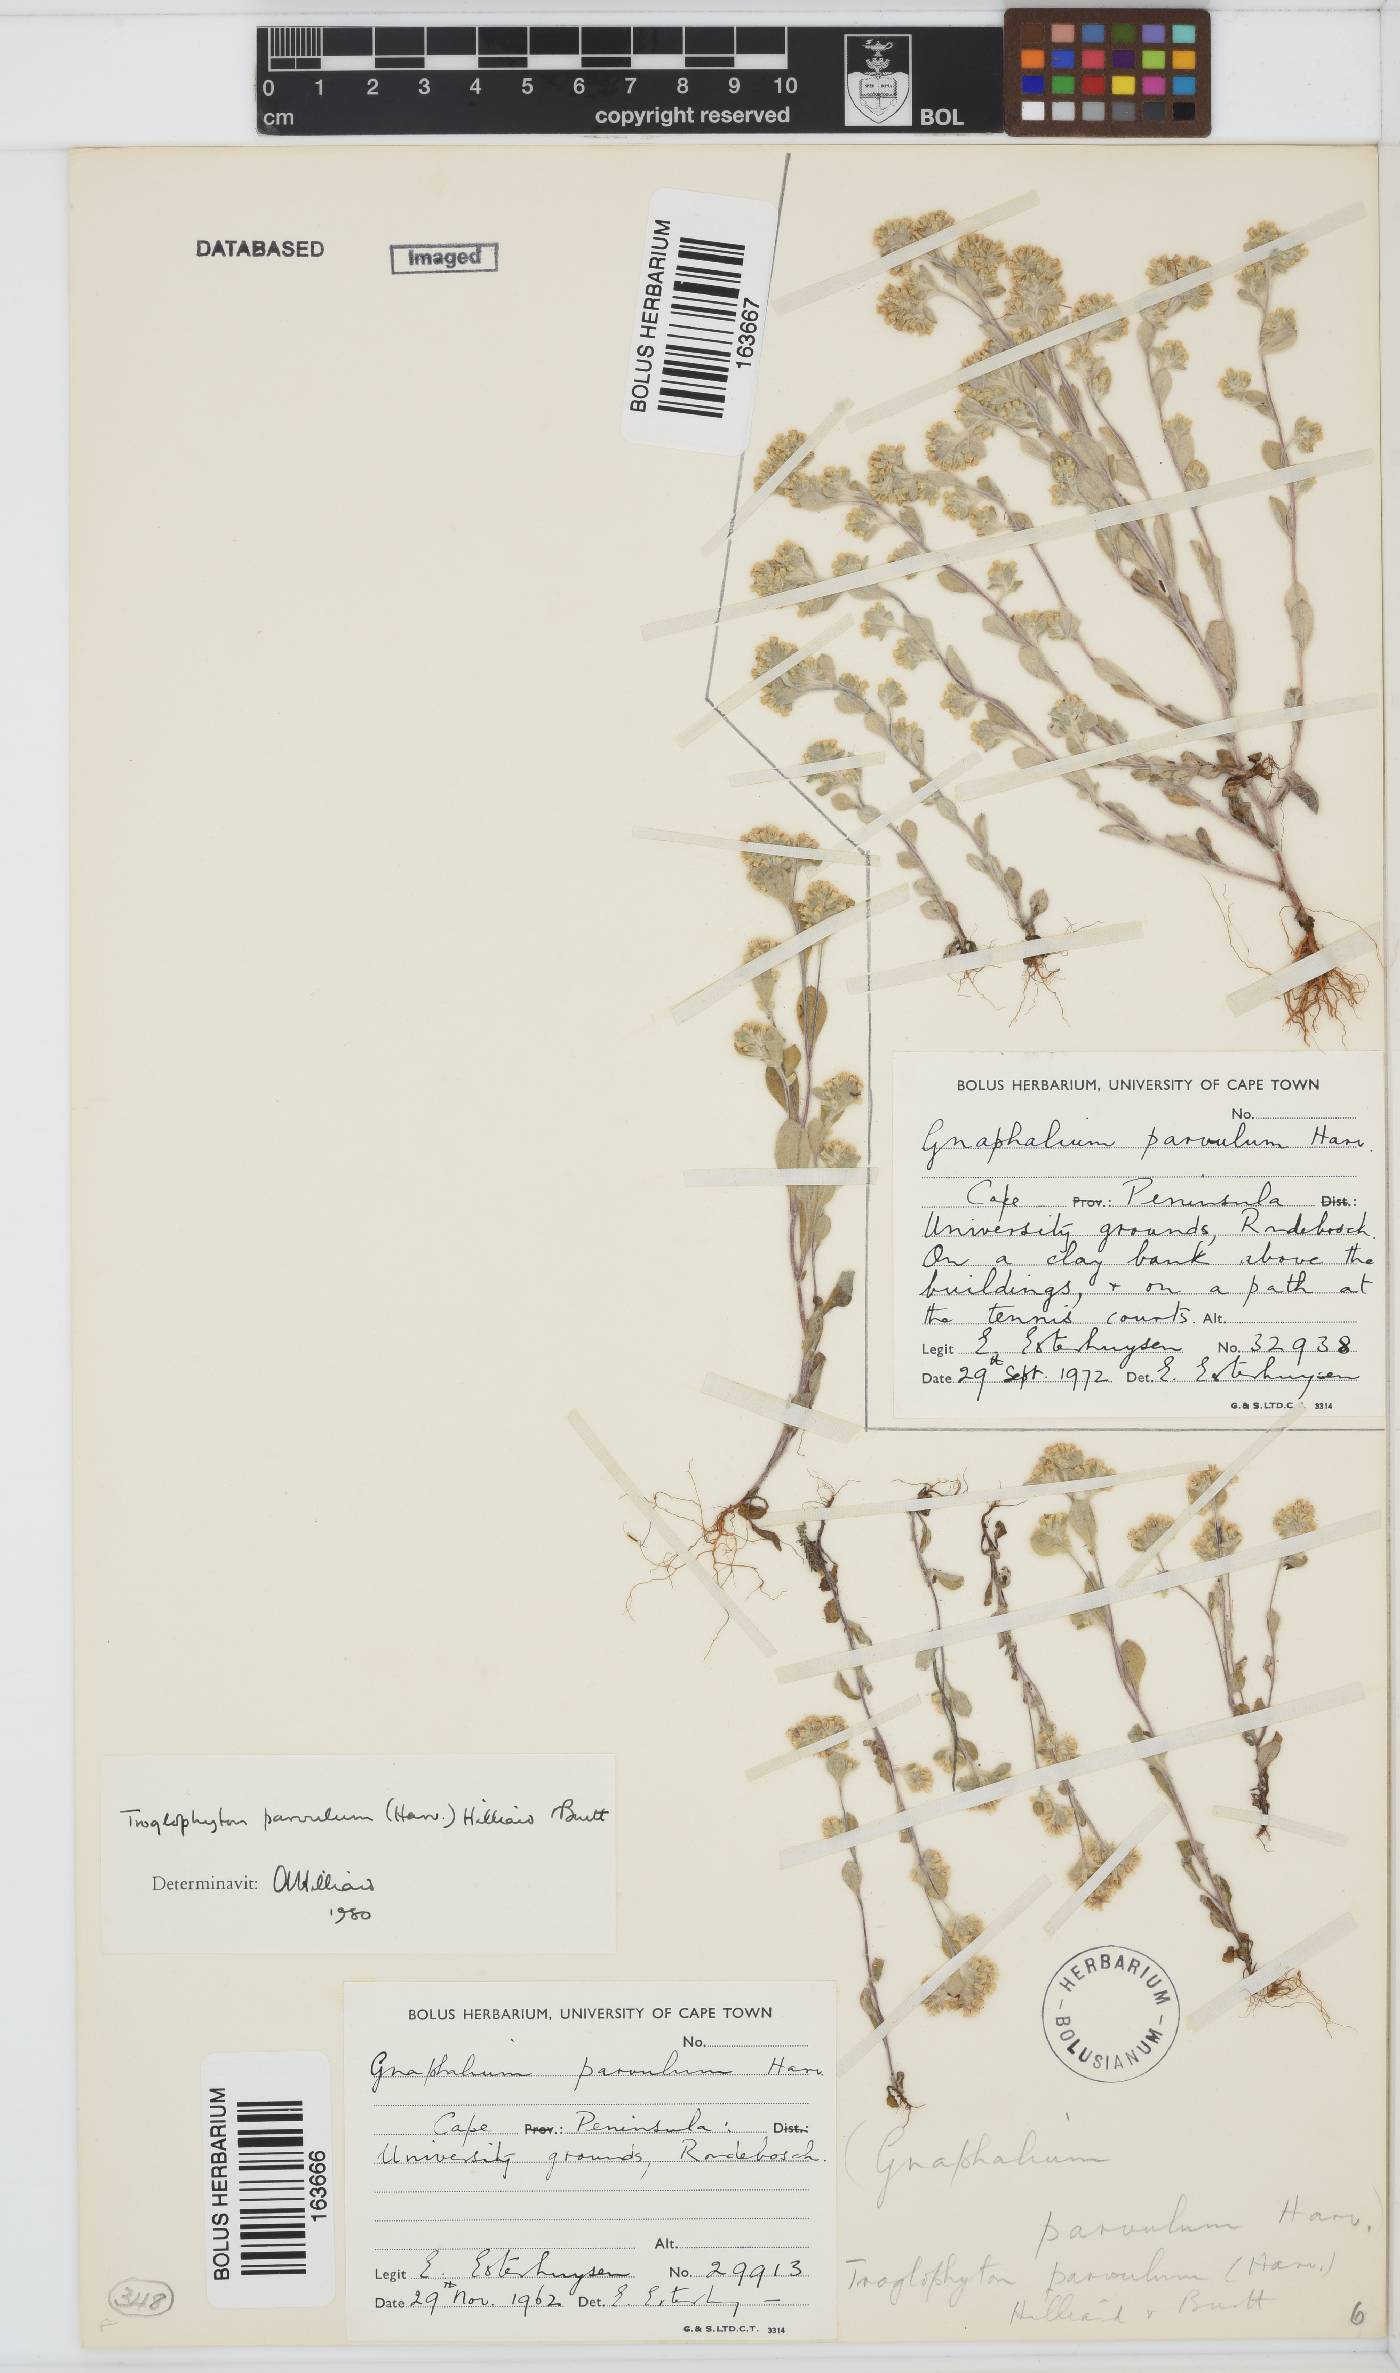 0 1 2 3 4 5 6 7 8 9 10
cm
copyright reserved
BOL
DATABASED
Imaged
BOLUS HERBARIUM
163667
BOLUS HERBARIUM, UNIVERSITY OF CAPE TOWN
No.
Gnaphalium parvulum Harv.
Cape Prov.: Peninsula Dist.:
University grounds, Rondebosch.
On a clay bank above the
buildings, + on a path at
the tennis courts. Alt.
Legit E. Esterhuysen No. 32938
Date 29th Sept. 1972 Det. E. Esterhuysen
G. & S. LTD. C. 3314
Troglophyton parvulum (Harv.) Hilliard & Burtt
Determinavit: O Hilliard
1980
HERBARIUM
BOLUSIANUM
BOLUS HERBARIUM, UNIVERSITY OF CAPE TOWN
No.
Gnaphalium parvulum Harv.
Cape Prov.: Peninsula: Dist.:
University grounds, Rondebosch.
Alt.
Legit E. Esterhuysen No. 29913
Date 29th Nov. 1962 Det. E. Esterh,—
G. & S. LTD. C.T. 3314
BOLUS HERBARIUM
163666
348
(Gnaphalium
parvulum Harv.)
Troglophyton parvulum (Harv.)
Hilliard & Burtt
6